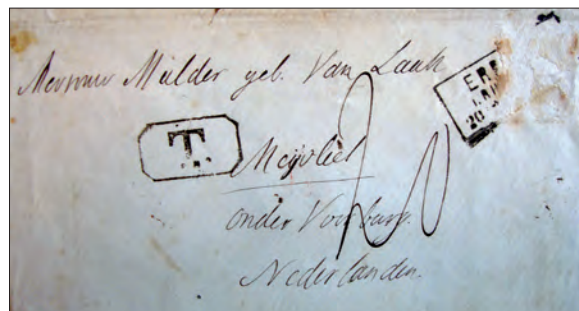 Mevrouw Mulder geb. Van Laak
T.
Meijvliet
onder Voorburg.
Nederlanden.
20